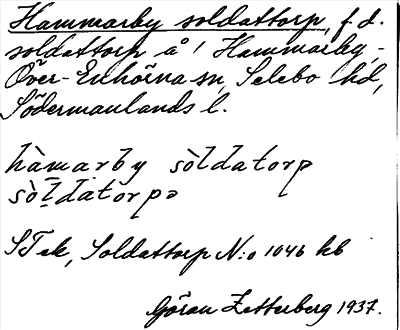 Hammarby soldattorp, f.d.
soldattorp å 1 Hammarby,
Över-Enhörna sn, Selebo hd,
Södermanlands l.
hàmarby sòldatorp
sòḷdatorpə
STek, Soldattorp N:o 1046 kb
Göran Zetterberg 1937.